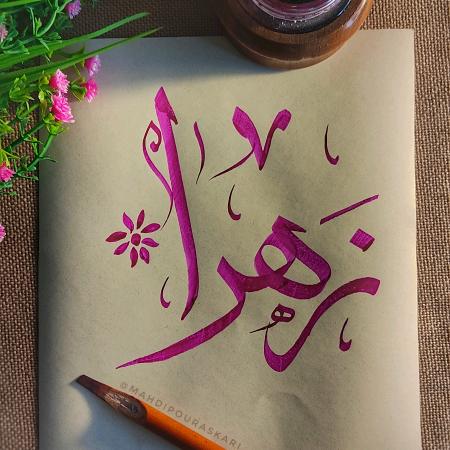 زهرا
@MAHDIPOURASKARI